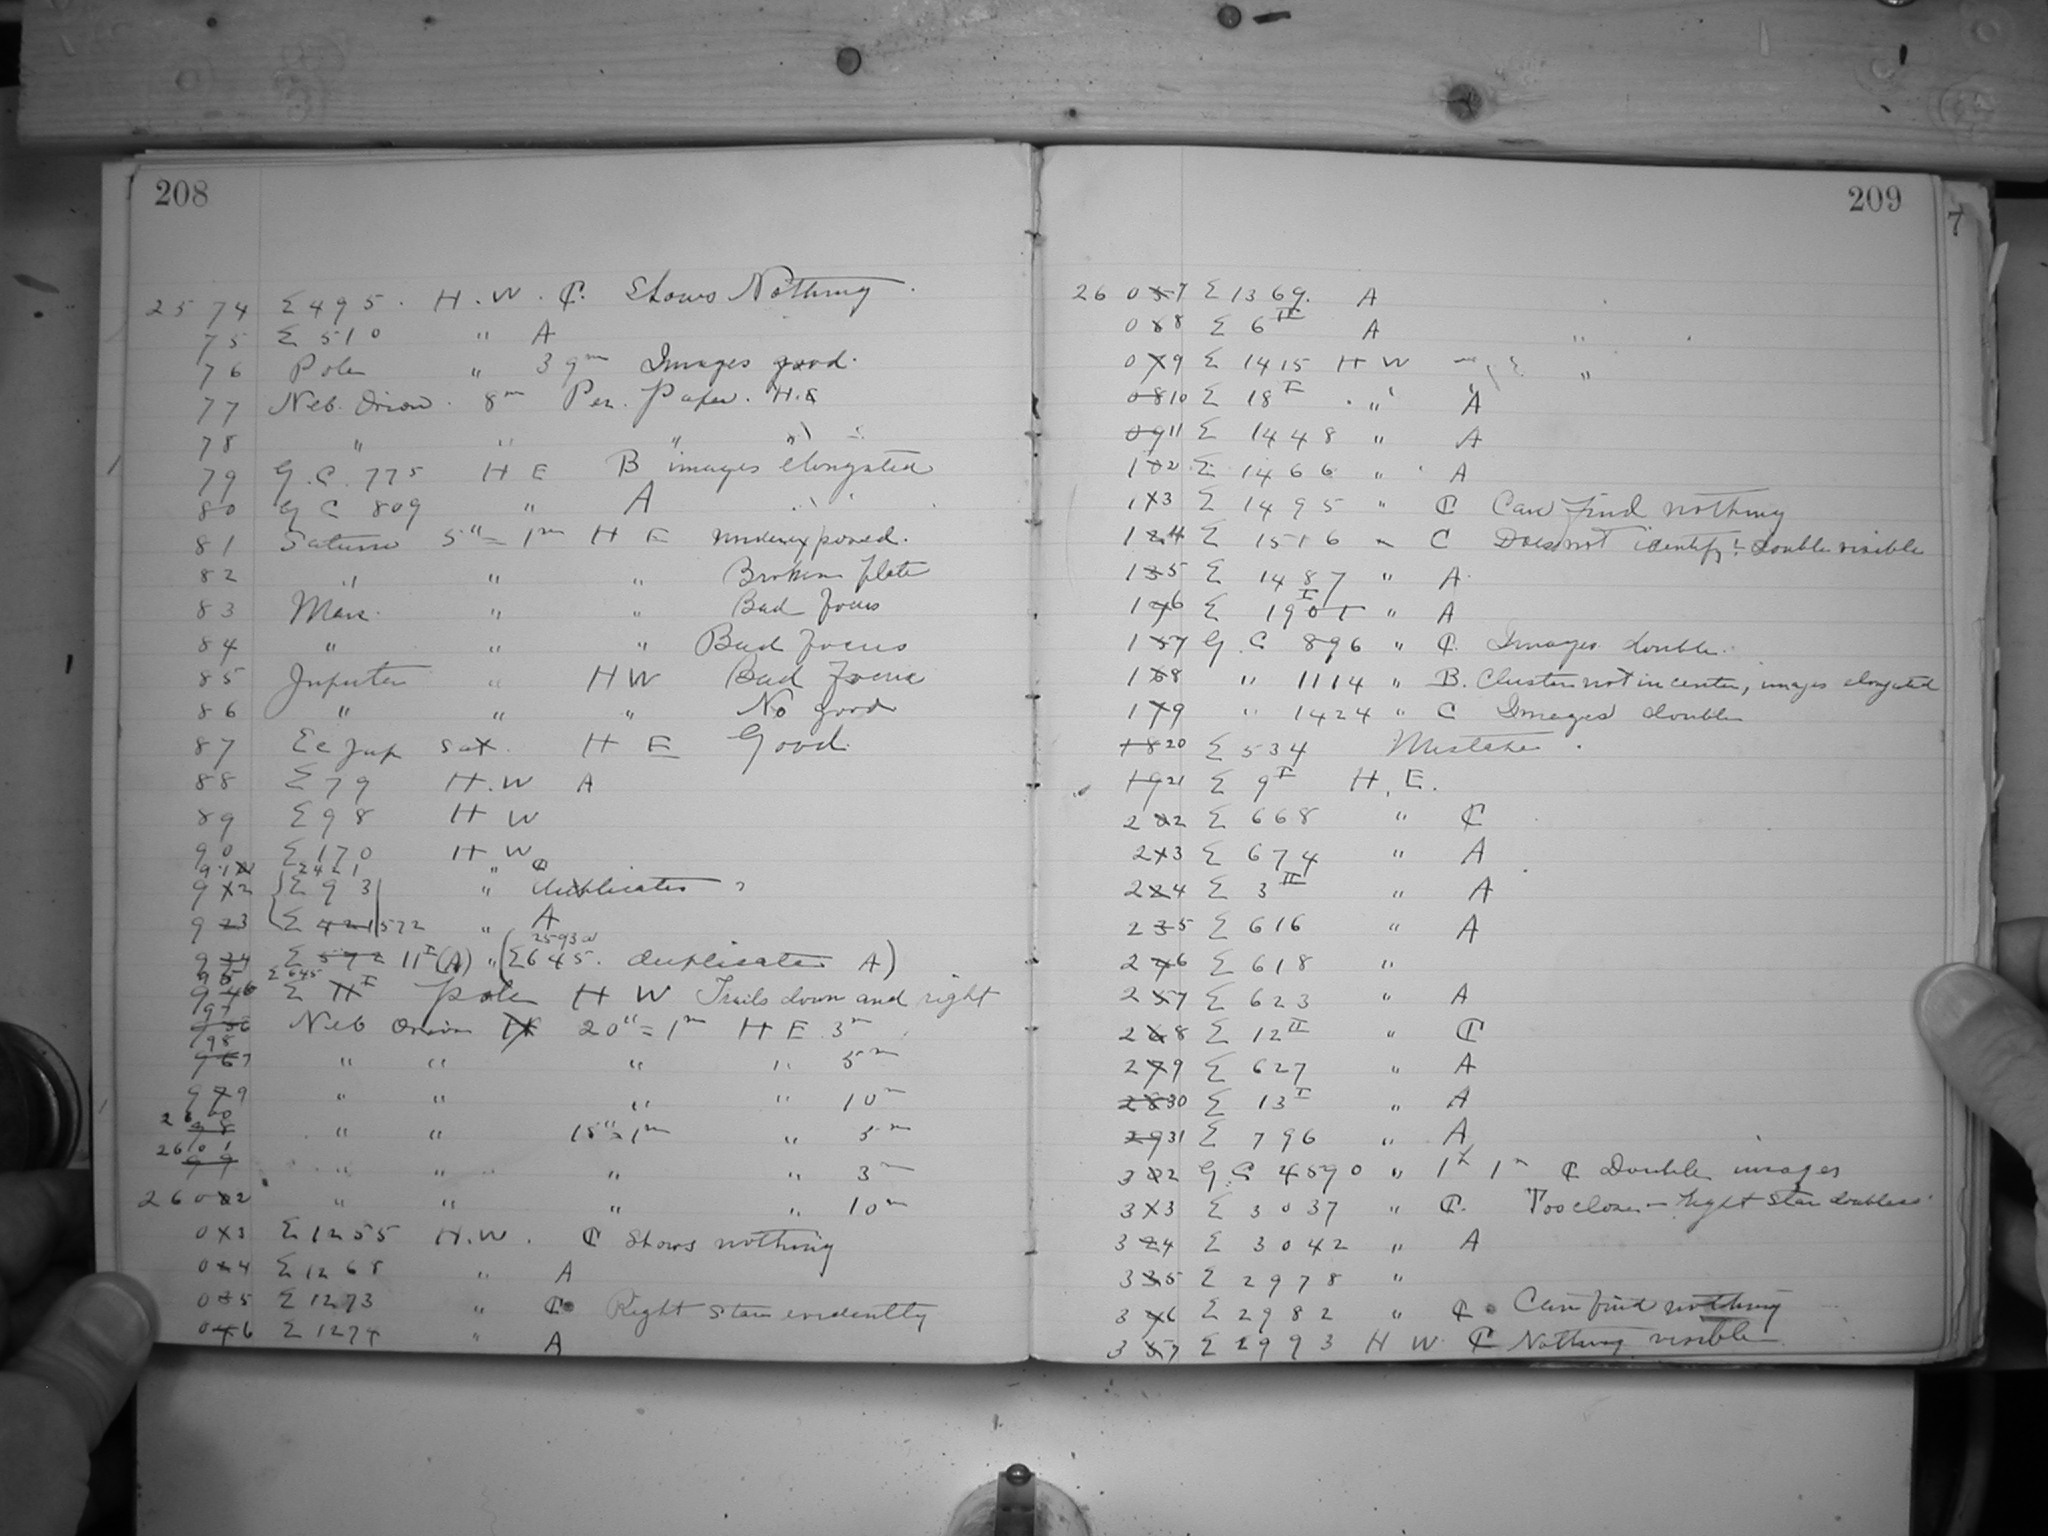 208
2574 Σ 495. H.W. ₵. Shows Nothing.
75 Σ 510 " A
76 Pole " 39m Images good.
77 Neb. Orion. 8m Per. Paper. H.E
78 " " " "
79 G.C. 775 H E B images elongated
80 G C 809 " A
81 Saturn 5"= 1m H E underexposed.
82 " " " Broken plate
83 Mars. " " Bad focus
84 " " " Bad focus
85 Jupiter " H W Bad focus
86 " " " No good
87 Ec Jup Sat. H E Good.
88 Σ 79 H.W A
89 Σ 98 H W
90 Σ 170 H W
91 2421 " ₵
92 Σ 93 " duplicates ?
93 Σ 421 572 " A
2593a
94 Σ 572 11I (A) " (Σ645. duplicates A)
95 Σ 645
96 Σ 11I Pole H W Trails down and right
97 Neb Orion 20"= 1m H E 3m
98 " " " " 5m
99 " " " " 10m
2600 " " 15"= 1m " 5m
2601 " " " " 3m
2602 " " " " 10m
03 Σ 1255 H.W. ₵ Shows nothing
04 Σ 1268 " A
05 Σ 1273 " ₵ Right star evidently
06 Σ 1274 " A
209
7
2607 Σ 1369. A
08 Σ 6II A "
09 Σ 1415 H W "
10 Σ 18I " A
11 Σ 1448 " A
12 Σ 1466 " A
13 Σ 1495 " ₵ Can find nothing
14 Σ 1516 " C Does not identify! double visible
15 Σ 1487 " A
16 Σ 190I " A
17 G.C 896 " ₵ Images double.
18 " 1114 " B. Cluster not in center, images elongated
19 " 1424 " C Images double
20 Σ 534 Mistake.
21 Σ 9I H.E.
22 Σ 668 " ₵
23 Σ 674 " A
24 Σ 3II " A
25 Σ 616 " A
26 Σ 618 "
27 Σ 623 " A
28 Σ 12II " ₵
29 Σ 627 " A
30 Σ 13I " A
31 Σ 796 " A
32 G.C 4590 " 1h 1m ₵ Double images
33 Σ 3037 " ₵. Too close - Right Star doubless
34 Σ 3042 " A
35 Σ 2978 "
36 Σ 2982 " ₵ Can find nothing
37 Σ 2993 H W ₵ Nothing visible